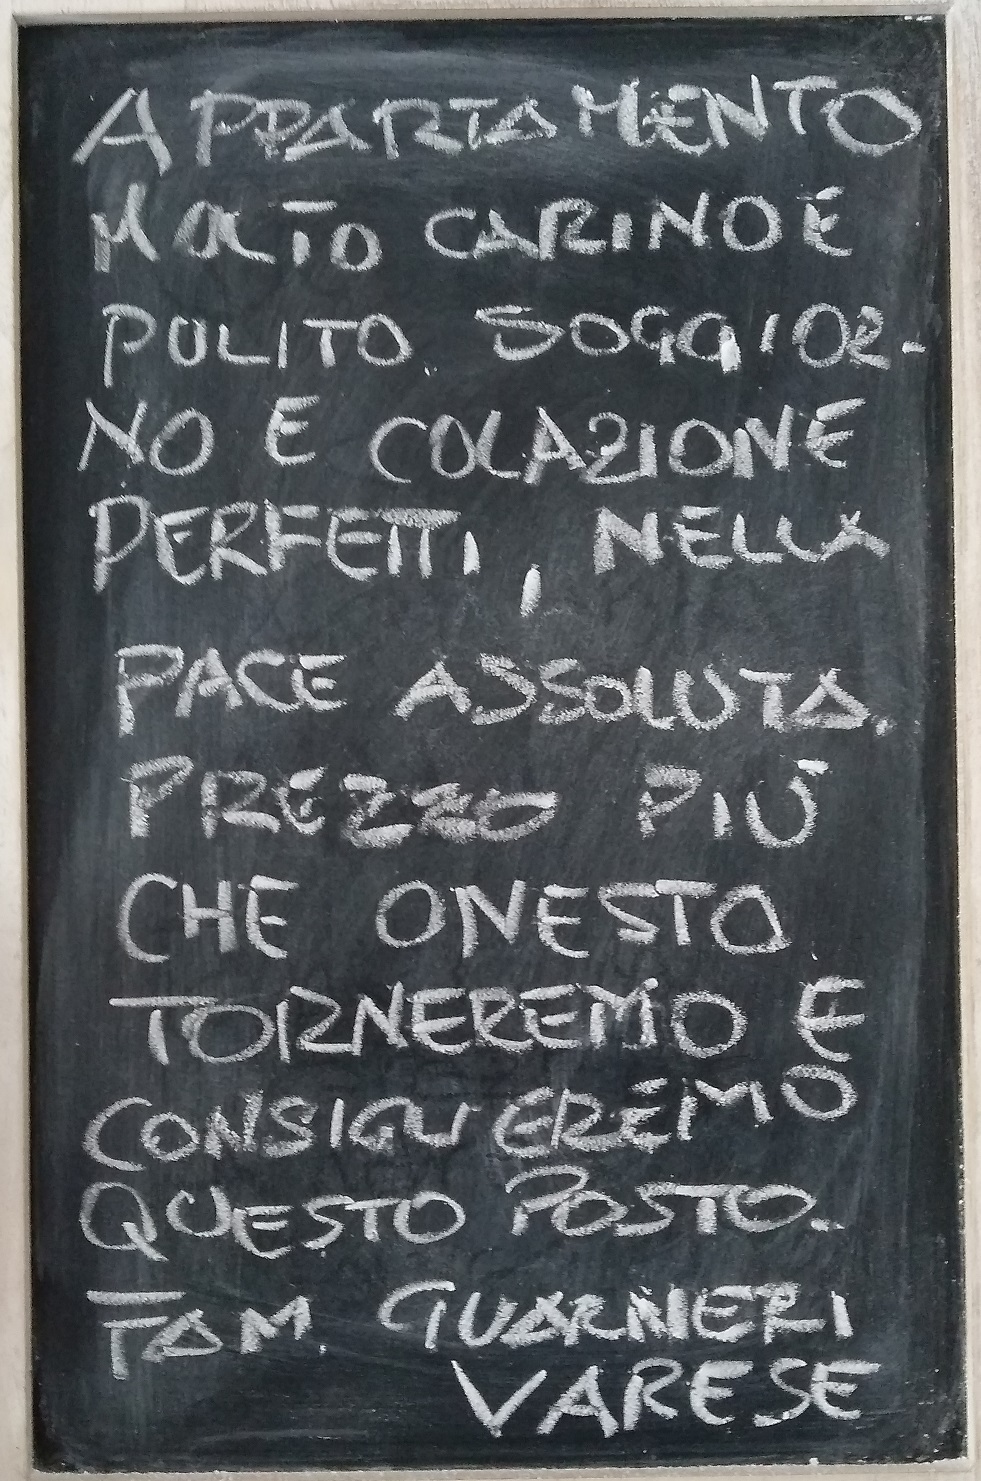 APPARTAMENTO
MOLTO CARINO E
PULITO. SOGGIOR-
NO E COLAZIONE
PERFETTI, NELLA
PACE ASSOLUTA.
PREZZO PIÙ
CHE ONESTO.
TORNEREMO E
CONSIGLIEREMO
QUESTO POSTO..
FAM. GUARNERI
VARESE